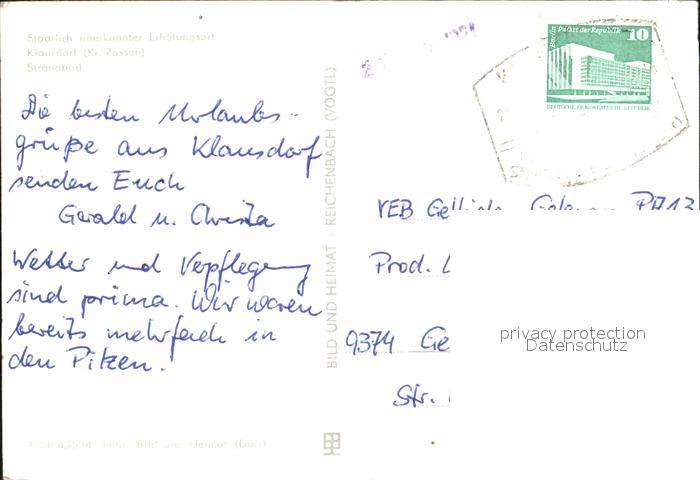 Staatlich anerkannter Erholungsort
Klausdorf (Kr. Zossen)
Strandbad
Die besten Urlaubs-
grüße aus Klausdorf
senden Euch
Gerald u. Christa
Wetter und Verpflegung
sind prima. Wir waren
bereits mehrfach in
den Pilzen.
Foto: Bild und Heimat
BILD UND HEIMAT · REICHENBACH (VOGTL)
Berlin Palast der Republik 10
DEUTSCHE DEMOKRATISCHE REPUBLIK
VEB
Prod.
9374 Ge
Str.
privacy protection
Datenschutz